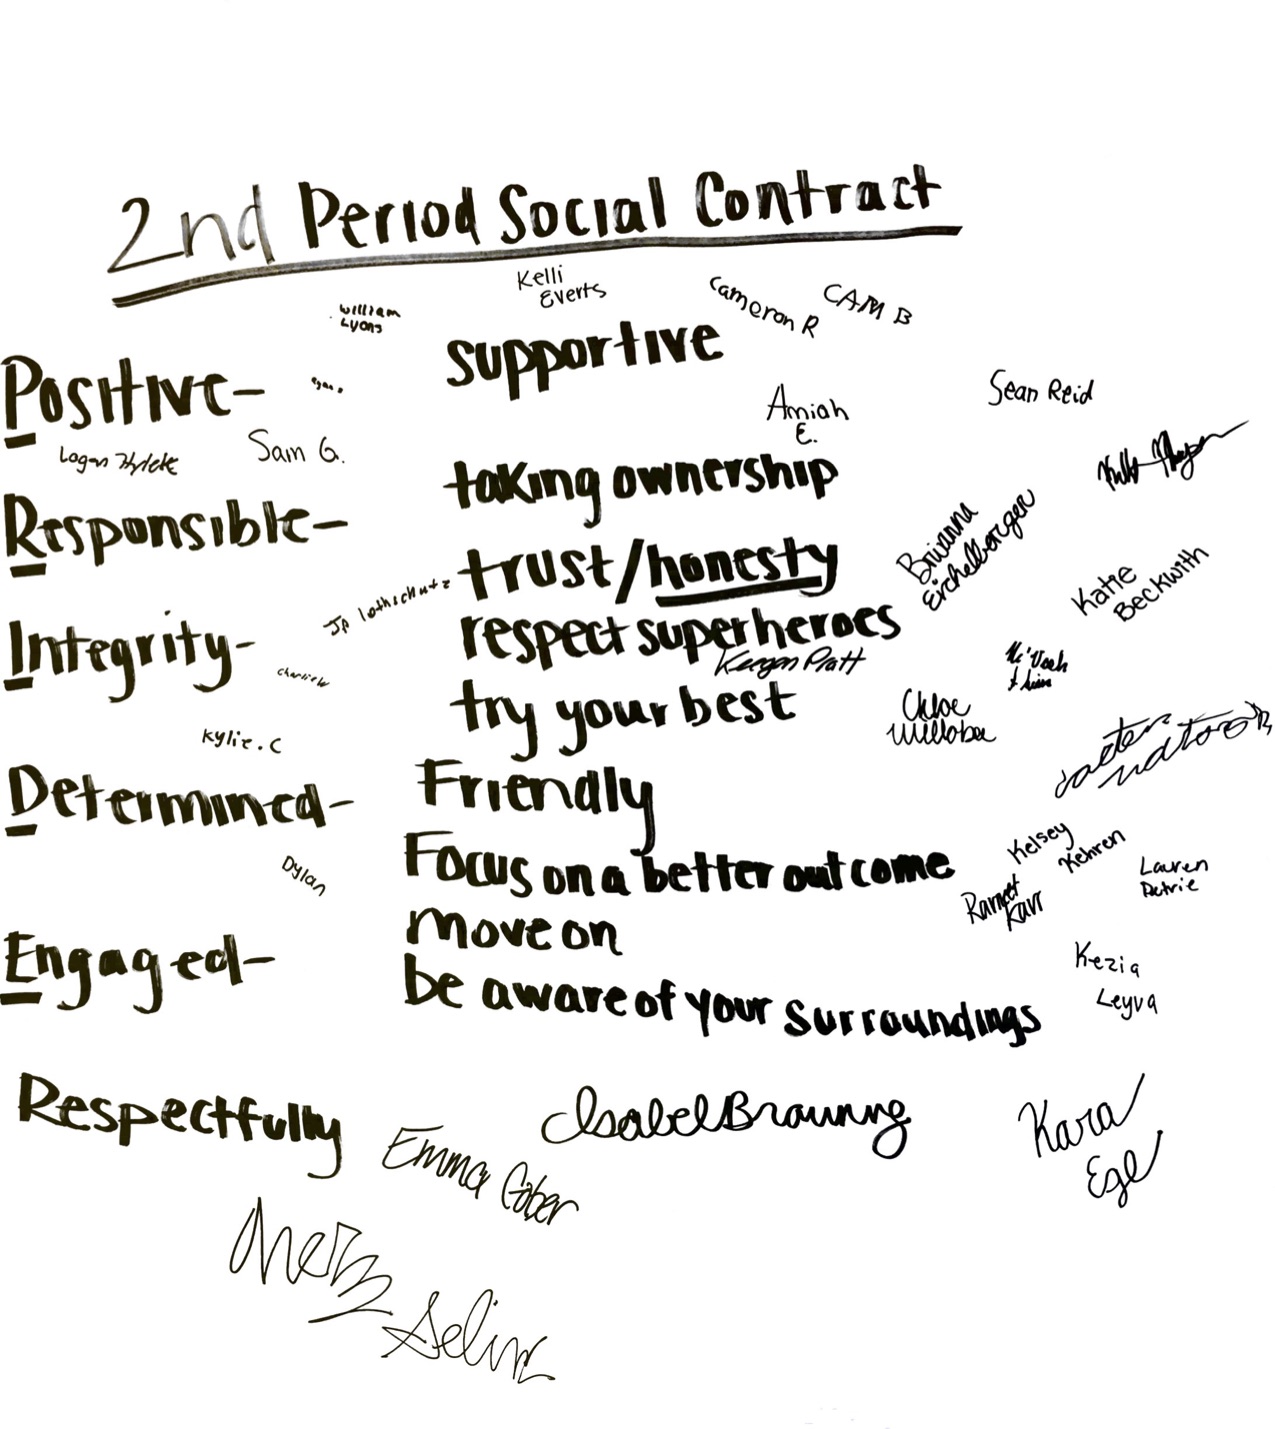 2nd Period Social Contract
Kelli
Everts
Cameron R
CAM B
William
Lyons
supportive
Positive-
Sean Reid
Amiah
E.
Logan
Sam G.
taking ownership
Responsible-
Brianna
Eichelberger
trust/honesty
Katie
Beckwith
JP Lothschutz
respect superheroes
Integrity-
Keegan Pratt
Charlie
try your best
Chloe
Willobee
Kylie.C
Friendly
Determined-
Kelsey
Kehren
Focus on a better outcome
Dylan
Lauren
Petrie
Karr
move on
Engaged-
Kezia
Leyva
be aware of your surroundings
Respectfully
Isabel Browning
Kara
Ege
Emma Gober
Selin